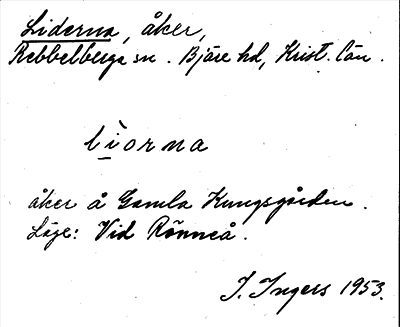 Liderna, åker,
Rebbelberga sn. Bjäre hd, Krist. län.
líorna
åker å Gamla Kungsgården.
Läge: Vid Rönneå.
I. Ingers 1953.